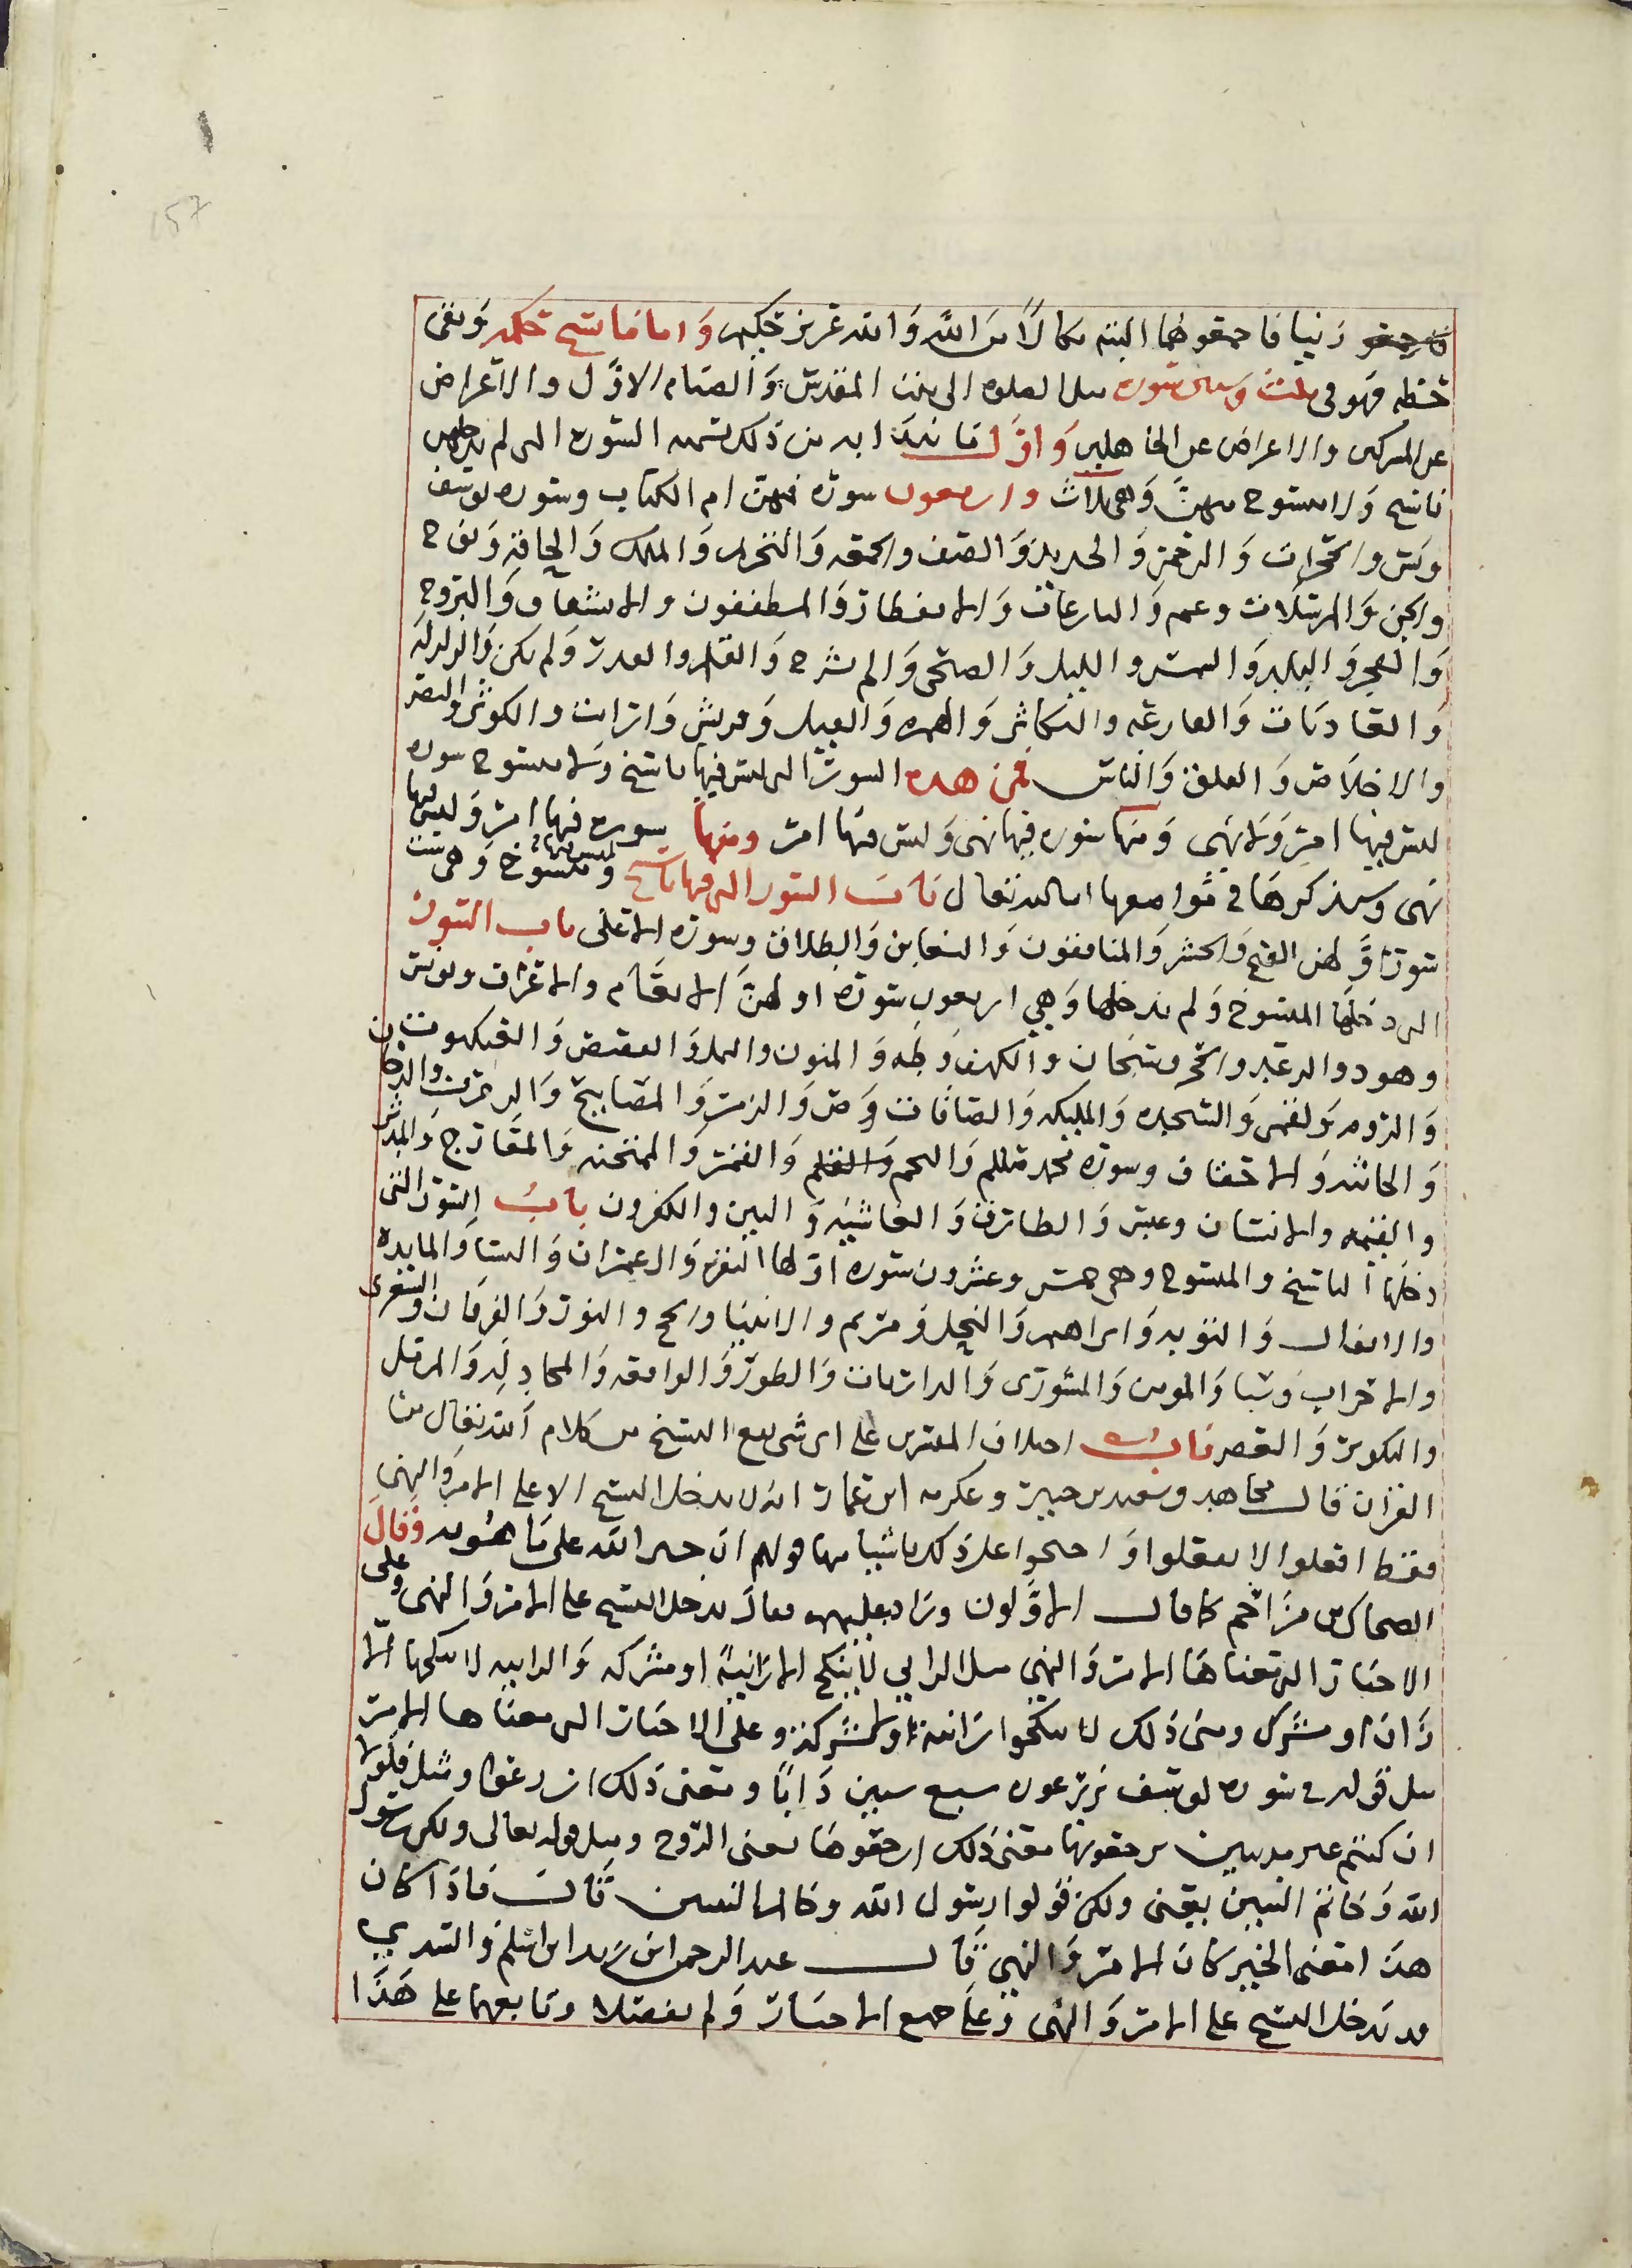 157
زنيا فارجموهما البته نكالا من الله والله عزيز حكيم واما ما نسخ حكمه وبقى
خطه فهو فى ثلث وستين سوره مثل الصلوه الى بيت المقدس والصيام الاول والاعراض
عن المشركين والاعراض عن الجاهلين واول ما نبدا به من ذلك تسميه السوره التى لم يدخلهن
ناسخ ولا منسوخ منهن وهى ثلاث واربعون سوره فمهن ام الكتاب وسوره يوسف
ويس والحجرات والرحمن والحديد والصف والجمعه والتحريم والملك والحاقه ونوح
والجن والمرسلات وعم والنازعات والانفطار والمطففون والانشقاق والبروج
والفجر والبلد والشمس والليل والضحى والم نشرح والقلم والقدر ولم يكن والزلزله
والعاديات والقارعه والتكاثر والهمزه والفيل وقريش وارايت والكوثر والنصر
والاخلاص والفلق والناس فمن هذه السور التى ليس فيها ناسخ ولا منسوخ سوره
ليس فيها امر ولا نهى ومنها سوره فيها نهى وليس فيها امر ومنها سوره فيها امر وليس فيها
نهى وسنذكرها فى مواضعها ان شا الله تعالى باب السور التى فيها ناسخ وليس فيها منسوخ وهى ست
سور اولهن الفتح والحشر والمنافقون والتغابن والطلاق وسوره الاعلى باب السور
التى دخلها المنسوخ ولم يدخلها وهى اربعون سوره اولهن الانعام والاعراف ويونس
وهود والرعد والحجر وسبحان والكهف وطه والمنون والنمل والقصص والعنكبوت
والروم ولقمن والسجده والمليكه والصافات وص والزمر والمصابيح والزخرف والدخان
والجاثيه والاحقاف وسوره محمد صلعم والنجم والقلم والقمر والممتحنه والمعارج والمدثر
والقيمه والانسان وعبس والطارق والغاشيه والتين والكفرون باب السور التى
دخلها الناسخ والمنسوخ وهى خمس وعشرون سوره اولها البقره وال عمران والنسا والمايده
والانفال والتوبه وابراهيم والنحل ومريم والانبيا والحج والنور والفرقان والشعرى
والاحزاب وسبا والمومن والشورى والذاريات والطور والواقعه والمجادله والمزمل
والتكوير والعصر باب اختلاف المفسرين على اى شى يقع النسخ من كلام الله تعالى من
القران قال مجاهد وسعيد بن جبير وعكرمه ابن عمار انه لا يدخل النسخ الا على الامر والنهى
فقط افعلوا لا تفعلوا واحتجوا على ذلك باشيا منها قولهم ان خبر الله على ما هو به وقال
الضحاك بن مزاحم كما قال الاولون وزاد عليهم فقال يدخل النسخ على الامر والنهى وعلى
الاخبار التى معناها الامر والنهى مثل الزانى لا ينكح الا زانيه او مشركه والزانيه لا ينكحها الا
زان او مشرك ومعنى ذلك لا تنكحوا زانيه ولا مشركه وعلى الاخبار التى معناها الامر
مثل قوله فى سوره يوسف تزرعون سبع سنين دابا ومعنى ذلك ازرعوا ومثل فلولا
ان كنتم غير مدينين ترجعونها معنى ذلك ارجعوها يعنى الروح ومثل قوله تعالى ولكن رسول
الله وخاتم النبيين يعنى ولكن قولوا رسول الله وخاتم النبيين قال فاذا كان
هذا معنى الخبر كان الامر والنهى قال عبد الرحمن ابن زيد ابن اسلم والسدى
قد يدخل النسخ على الامر والنهى وعلى جميع الاخبار ولم يفصلا وتابعهما على هذا